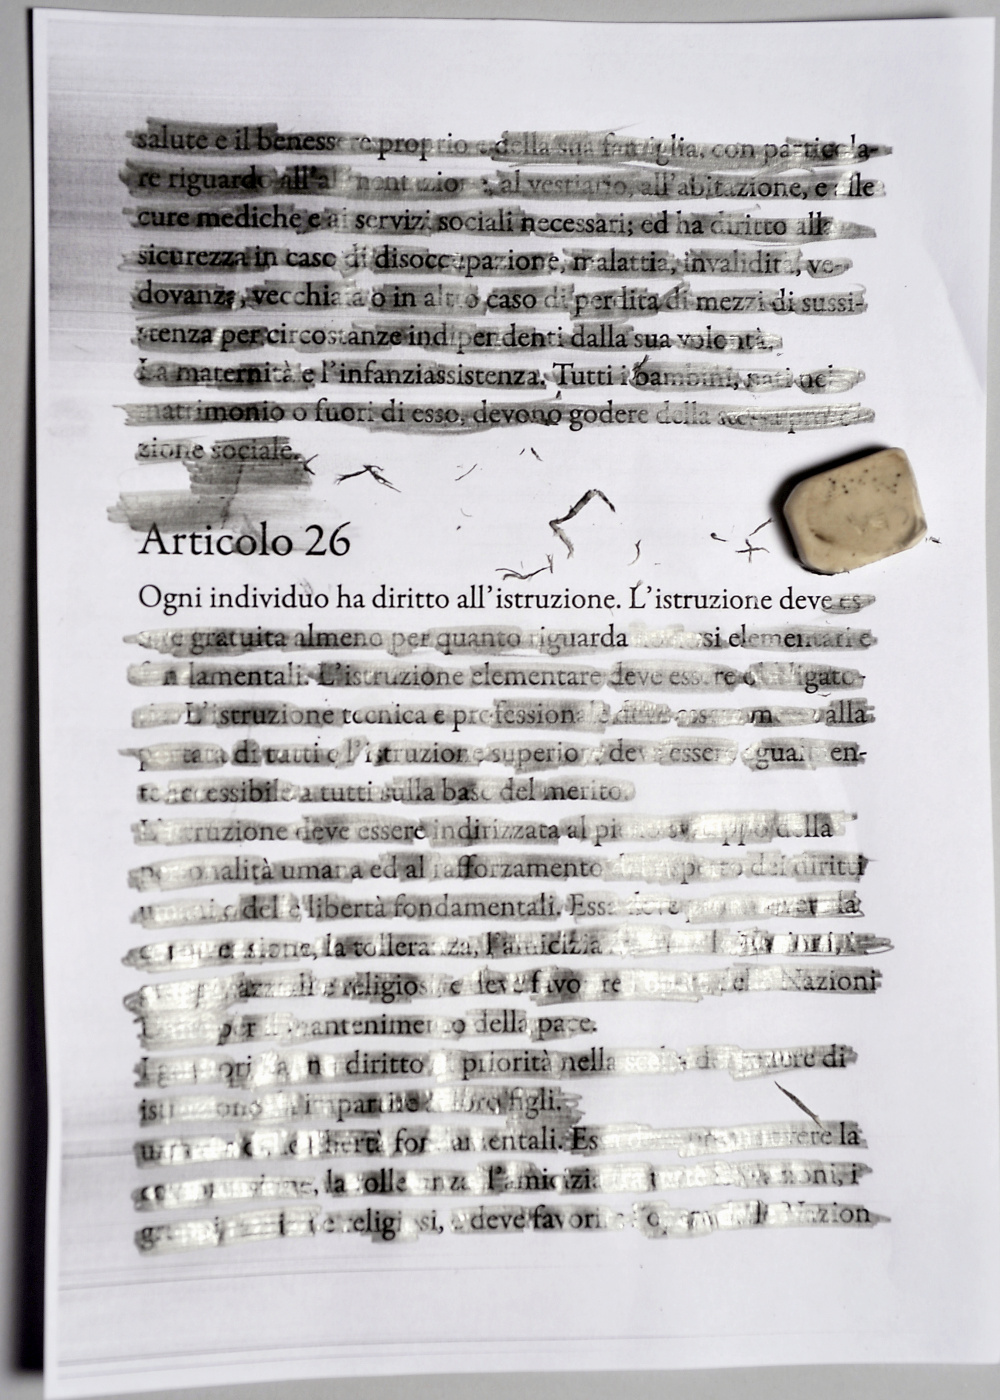 salute e il benessere proprio e della sua famiglia, con particola-
re riguardo all'alimentazione, al vestiario, all'abitazione, e alle
cure mediche e ai servizi sociali necessari; ed ha diritto alla
sicurezza in caso di disoccupazione, malattia, invalidità, ve-
dovanza, vecchiaia o in altro caso di perdita di mezzi di sussi-
stenza per circostanze indipendenti dalla sua volontà.
La maternità e l'infanziassistenza. Tutti i bambini, nati nel
matrimonio o fuori di esso, devono godere della stessa prote-
zione sociale.
Articolo 26
Ogni individuo ha diritto all'istruzione. L'istruzione deve es-
gratuita almeno per quanto riguarda elementari e
fondamentali. L'istruzione elementare deve essere obbligato-
L'istruzione tecnica e professionale deve alla
portata di tutti e l'istruzione superiore deve essere egualmen-
te accessibile a tutti sulla base del merito.
L'istruzione deve essere indirizzata al pieno sviluppo della
personalità umana ed al rafforzamento rispetto dei diritti
delle libertà fondamentali. Essa deve la
la tolleranza, l'amicizia
religiosi e deve favorire Nazioni
per il mantenimento della pace.
I genitori hanno diritto di priorità nella di
istruzione impartire loro figli.
libertà fondamentali. Es la
la tolleranza l'amicizia i
religiosi, e deve favorire Nazion